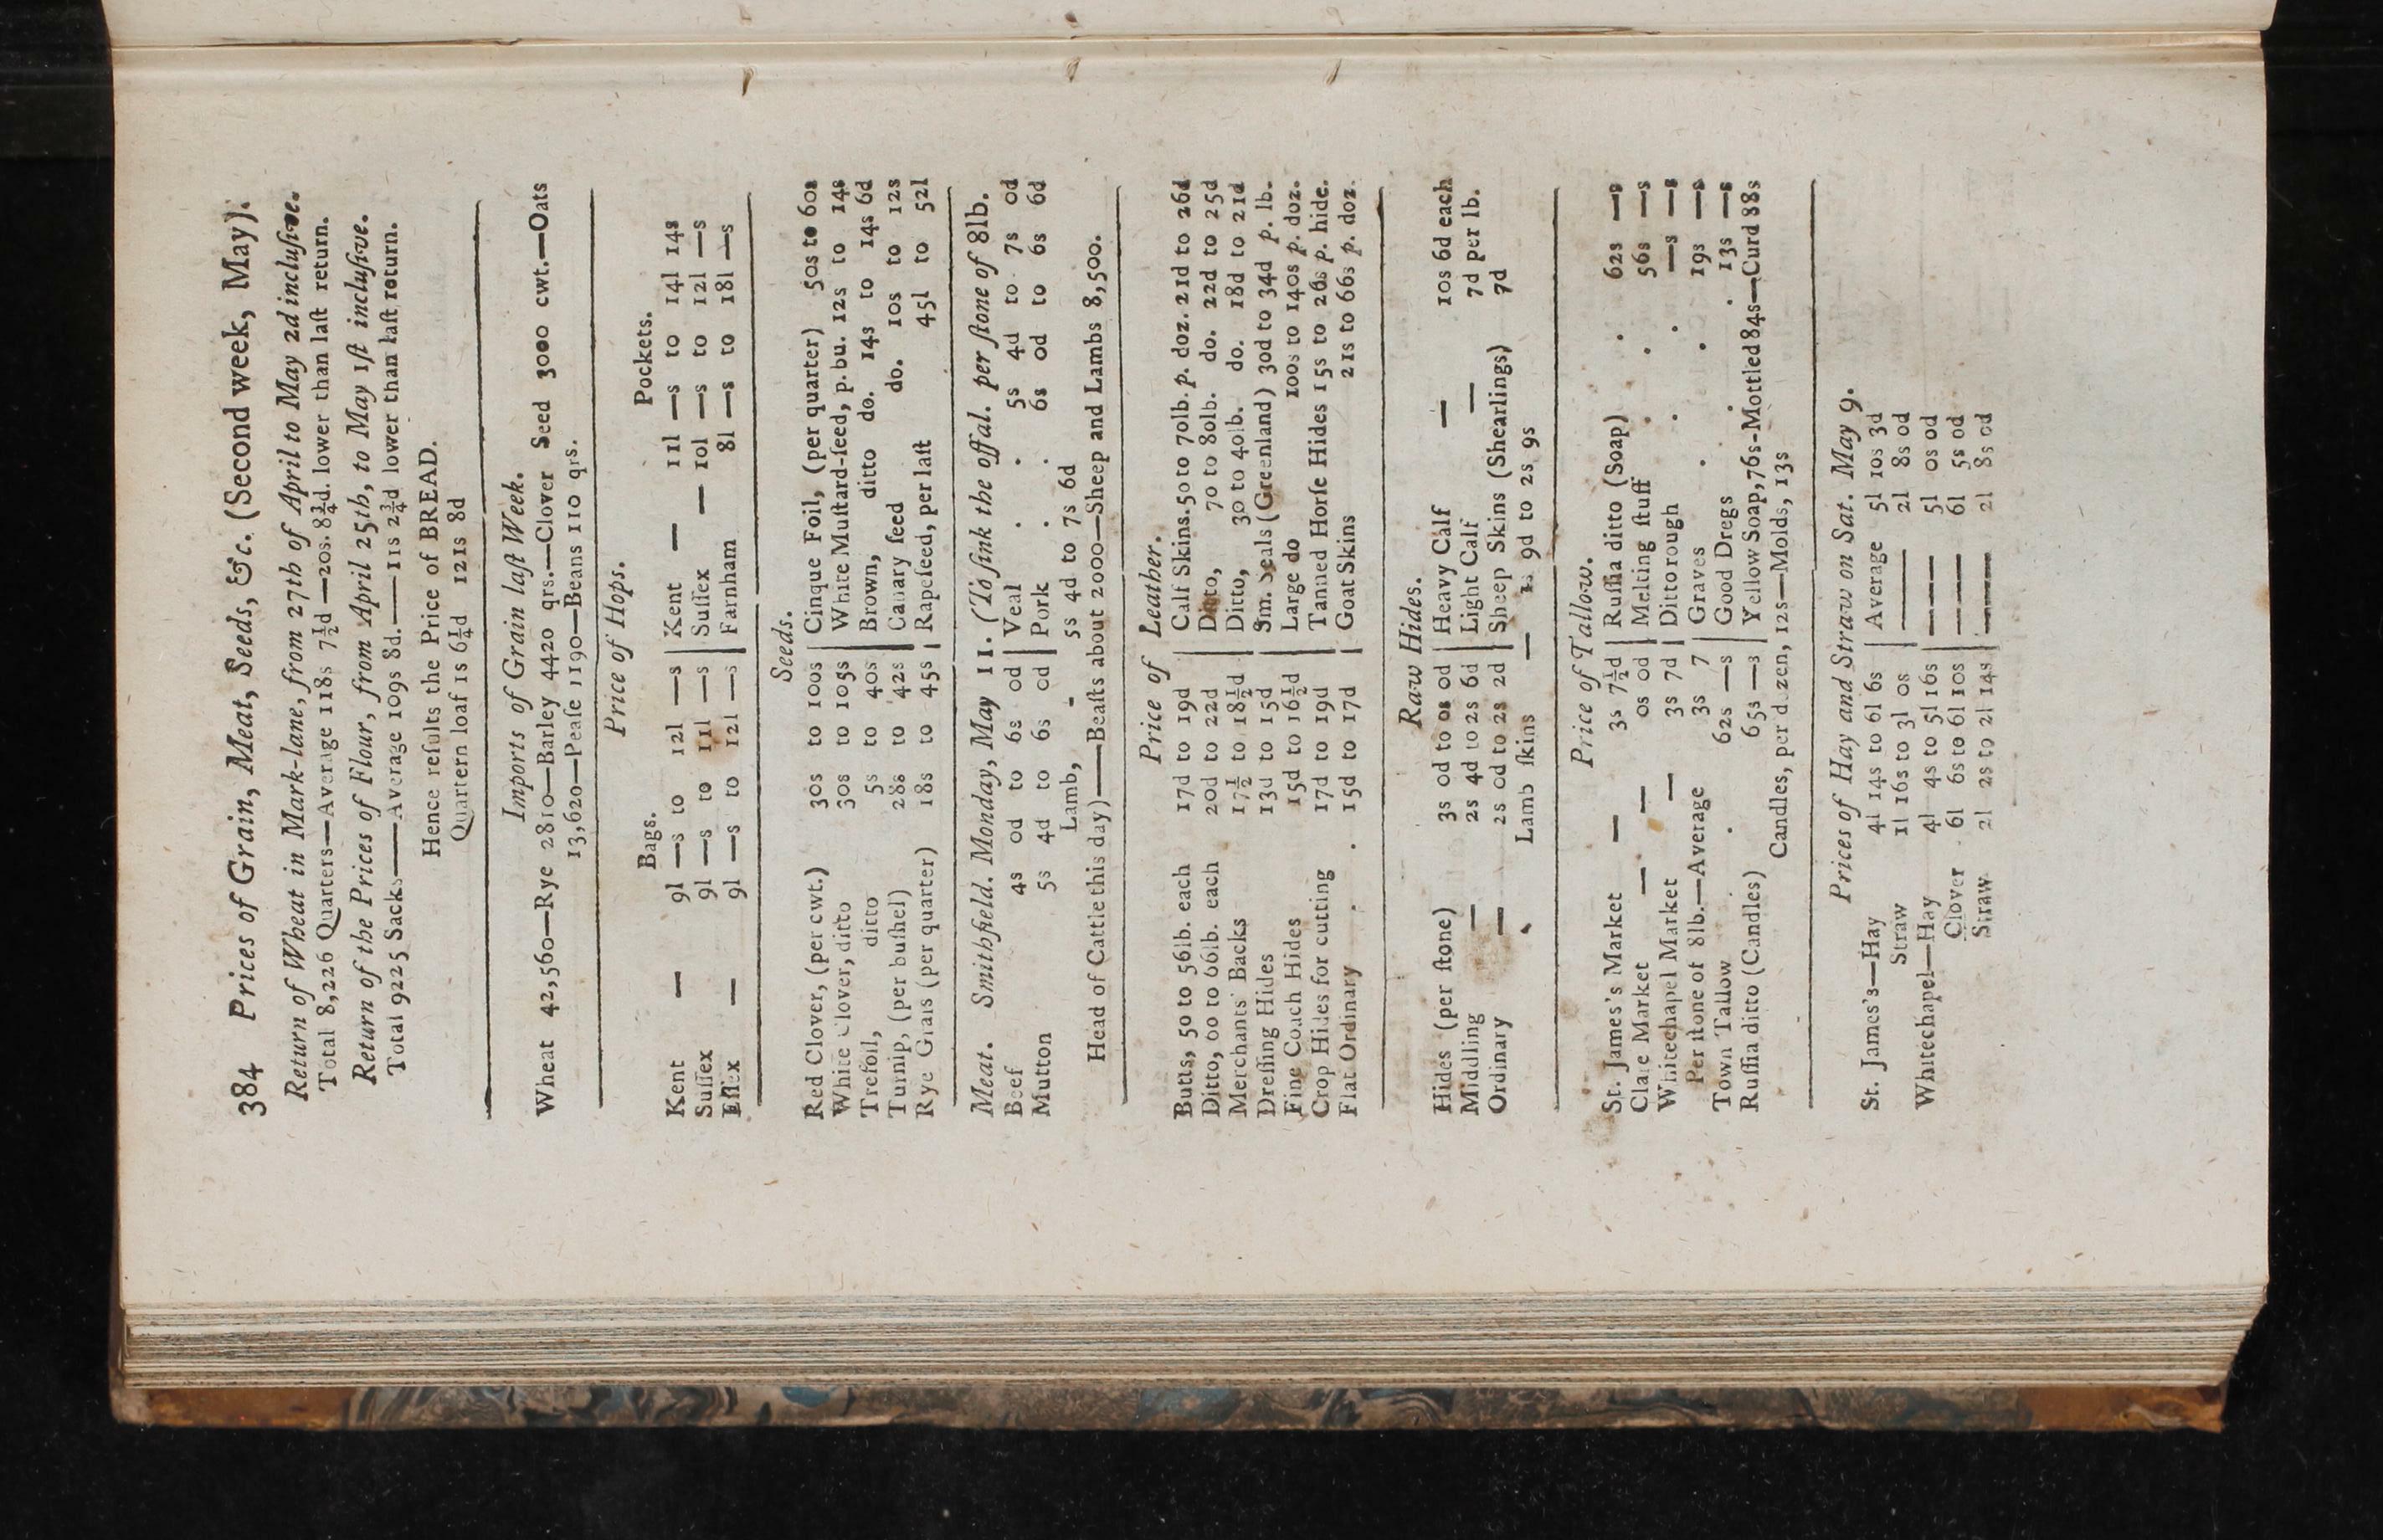 384 Prices of Grain, Meat, Seeds, &c. (Second week, May).
Return of Wheat in Mark-lane, from 27th of April to May 2d incluſive.
Total 8,226 Quarters—Average 118s 7½d —20s. 8¾d. lower than laſt return.
Return of the Prices of Flour, from April 25th, to May 1ſt incluſive.
Total 9225 Sacks——Average 109s 8d.——11s 2¾d lower than laſt return.
Hence reſults the Price of BREAD.
Quartern loaf 1s 6¼d 121s 8d
Imports of Grain laſt Week.
Wheat 42,560—Rye 2810—Barley 4420 qrs.—Clover Seed 3000 cwt.—Oats
13,620—Peaſe 1190—Beans 110 qrs.
Price of Hops.
Bags. Pockets.
Kent — 9l —s to 12l —s | Kent — 11l —s to 14l 14s
Suſſex 9l —s to 11l —s | Suſſex — 10l —s to 12l —s
Eſſex — 9l —s to 12l —s | Farnham 8l —s to 18l —s
Seeds.
Red Clover, (per cwt.) 30s to 100s | Cinque Foil, (per quarter) 50s to 60s
White Clover, ditto 30s to 105s | White Muſtard-ſeed, p. bu. 12s to 14s
Trefoil, ditto 5s to 40s | Brown, ditto do. 14s to 14s 6d
Turnip, (per buſhel) 28s to 42s | Canary ſeed do. 10s to 12s
Rye Graſs (per quarter) 18s to 45s | Rapeſeed, per laſt 45l to 52l
Meat. Smithfield. Monday, May 11. (To ſink the offal. per ſtone of 8lb.
Beef 4s 0d to 6s 0d | Veal . . 5s 4d to 7s 0d
Mutton 5s 4d to 6s 0d | Pork . . 6s 0d to 6s 6d
Lamb, - 5s 4d to 7s 6d
Head of Cattle this day)——Beaſts about 2000—Sheep and Lambs 8,500.
Price of Leather.
Butts, 50 to 56lb. each 17d to 19d | Calf Skins. 50 to 70lb. p. doz. 21d to 26d
Ditto, 60 to 66lb. each 20d to 22d | Ditto, 70 to 80lb. do. 22d to 25d
Merchants' Backs 17½ to 18½d | Ditto, 30 to 40lb. do. 18d to 21d
Dreſſing Hides 13d to 15d | Sm. Seals (Greenland) 30d to 34d p. lb.
Fine Coach Hides 15d to 16½d | Large do 100s to 140s p. doz.
Crop Hides for cutting 17d to 19d | Tanned Horſe Hides 15s to 26s p. hide.
Flat Ordinary . . 15d to 17d | Goat Skins 21s to 66s p. doz.
Raw Hides.
Hides (per ſtone) 3s 0d to 0s 0d | Heavy Calf — 10s 6d each
Middling — 2s 4d to 2s 6d | Light Calf — 7d per lb.
Ordinary — 2s 0d to 2s 2d | Sheep Skins (Shearlings) 7d
Lamb ſkins — 1s 9d to 2s 9s
Price of Tallow.
St. James's Market — 3s 7½d | Ruſſia ditto (Soap) . 62s —s
Clare Market — — 0s 0d | Melting ſtuff . . 56s —s
Whitechapel Market — 3s 7d | Ditto rough . . —s —s
Per ſtone of 8lb.—Average 3s 7 | Graves . . 19s —s
Town Tallow . 62s —s | Good Dregs . . 13s —s
Ruſſia ditto (Candles) 65s —s | Yellow Soap, 76s-Mottled 84s—Curd 88s
Candles, per dozen, 12s—Molds, 13s
Prices of Hay and Straw on Sat. May 9.
St. James's—Hay 4l 14s to 6l 6s | Average 5l 10s 3d
Straw 1l 16s to 3l 0s —— 2l 8s 0d
Whitechapel—Hay 4l 4s to 5l 16s —— 5l 0s 0d
Clover 6l 6s to 6l 10s —— 6l 5s 0d
Straw 2l 2s to 2l 14s —— 2l 8s 0d